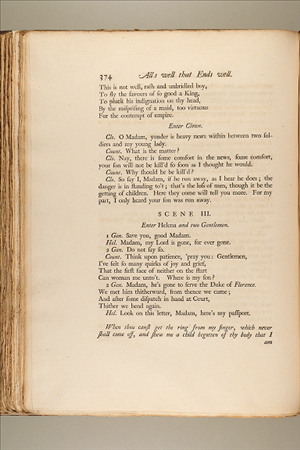 374 All's well that Ends well.
This is not well, rash and unbridled boy,
To fly the favours of so good a King,
To pluck his indignation on thy head,
By the misprising of a maid, too virtuous
For the contempt of empire.
Enter Clown.
Clo. O Madam, yonder is heavy news within between two sol-
diers and my young lady.
Count. What is the matter?
Clo. Nay, there is some comfort in the news, some comfort,
your son will not be kill'd so soon as I thought he would.
Count. Why should he be kill'd?
Clo. So say I, Madam, if he run away, as I hear he does; the
danger is in standing to't; that's the loss of men, though it be the
getting of children. Here they come will tell you more. For my
part, I only heard your son was run away.
SCENE III.
Enter Helena and two Gentlemen.
1 Gen. Save you, good Madam.
Hel. Madam, my Lord is gone, for ever gone.
2 Gen. Do not say so.
Count. Think upon patience, 'pray you: Gentlemen,
I've felt so many quirks of joy and grief,
That the first face of neither on the start
Can woman me unto't. Where is my son?
2 Gen. Madam, he's gone to serve the Duke of Florence.
We met him thitherward, from thence we came;
And after some dispatch in hand at Court,
Thither we bend again.
Hel. Look on this letter, Madam, here's my passport.
When thou canst get the ring from my finger, which never
shall come off, and shew me a child begotten of thy body that I
am